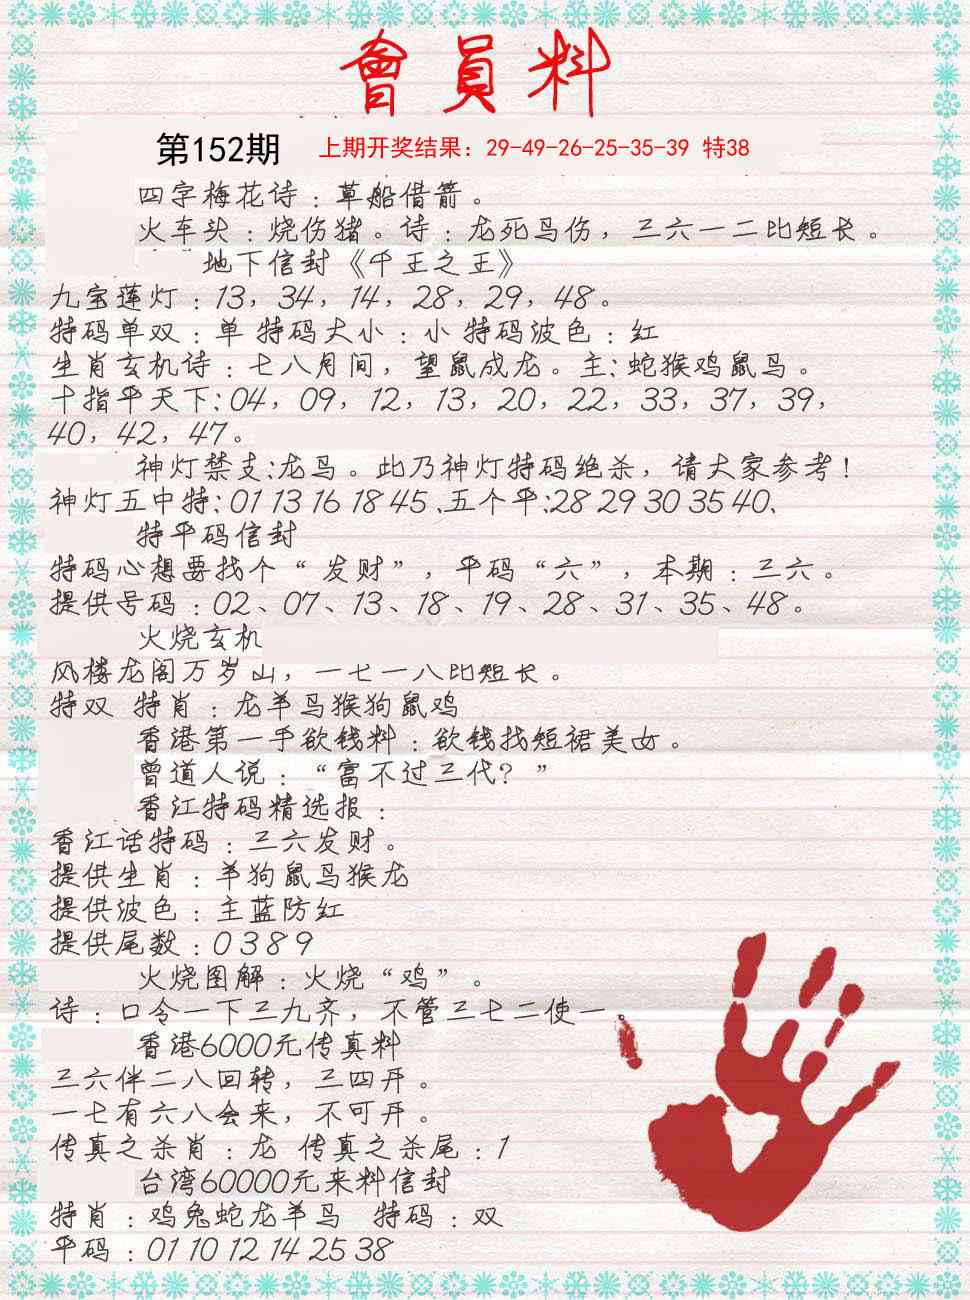 會員料
第152期 上期开奖结果：29-49-26-25-35-39 特38
四字梅花诗：草船借箭。
火车头：烧伤猪。诗：龙死鸟伤，三六一二比短长。
地下信封《千王之王》
九宝莲灯：13，34，14，28，29，48。
特码单双：单 特码大小：小 特码波色：红
生肖玄机诗：七八月间，望鼠成龙。主：蛇猴鸡鼠马。
十指平天下：04，09，12，13，20，22，33，37，39，
40，42，47。
神灯禁支：龙马。此乃神灯特码绝杀，请大家参考！
神灯五中特：01 13 16 18 45、五个平：28 29 30 35 40、
特平码信封
特码心想要找个“发财”，平码“六”，本期：三六。
提供号码：02、07、13、18、19、28、31、35、48。
火烧玄机
风楼龙阁万岁山，一七一八比短长。
特双 特肖：龙羊马猴狗鼠鸡
香港第一手欲钱料：欲钱找短裙美女。
曾道人说：“富不过三代？”
香江特码精选报：
香江话特码：三六发财。
提供生肖：羊狗鼠马猴龙
提供波色：主蓝防红
提供尾数：0 3 8 9
火烧图解：火烧“鸡”。
诗：口令一下三九齐，不管三七二使一。
香港6000元传真料
三六伴二八回转，三四开。
一七有六八会来，不可开。
传真之杀肖：龙 传真之杀尾：1
台湾60000元来料信封
特肖：鸡兔蛇龙羊马 特码：双
平码：01 10 12 14 25 38